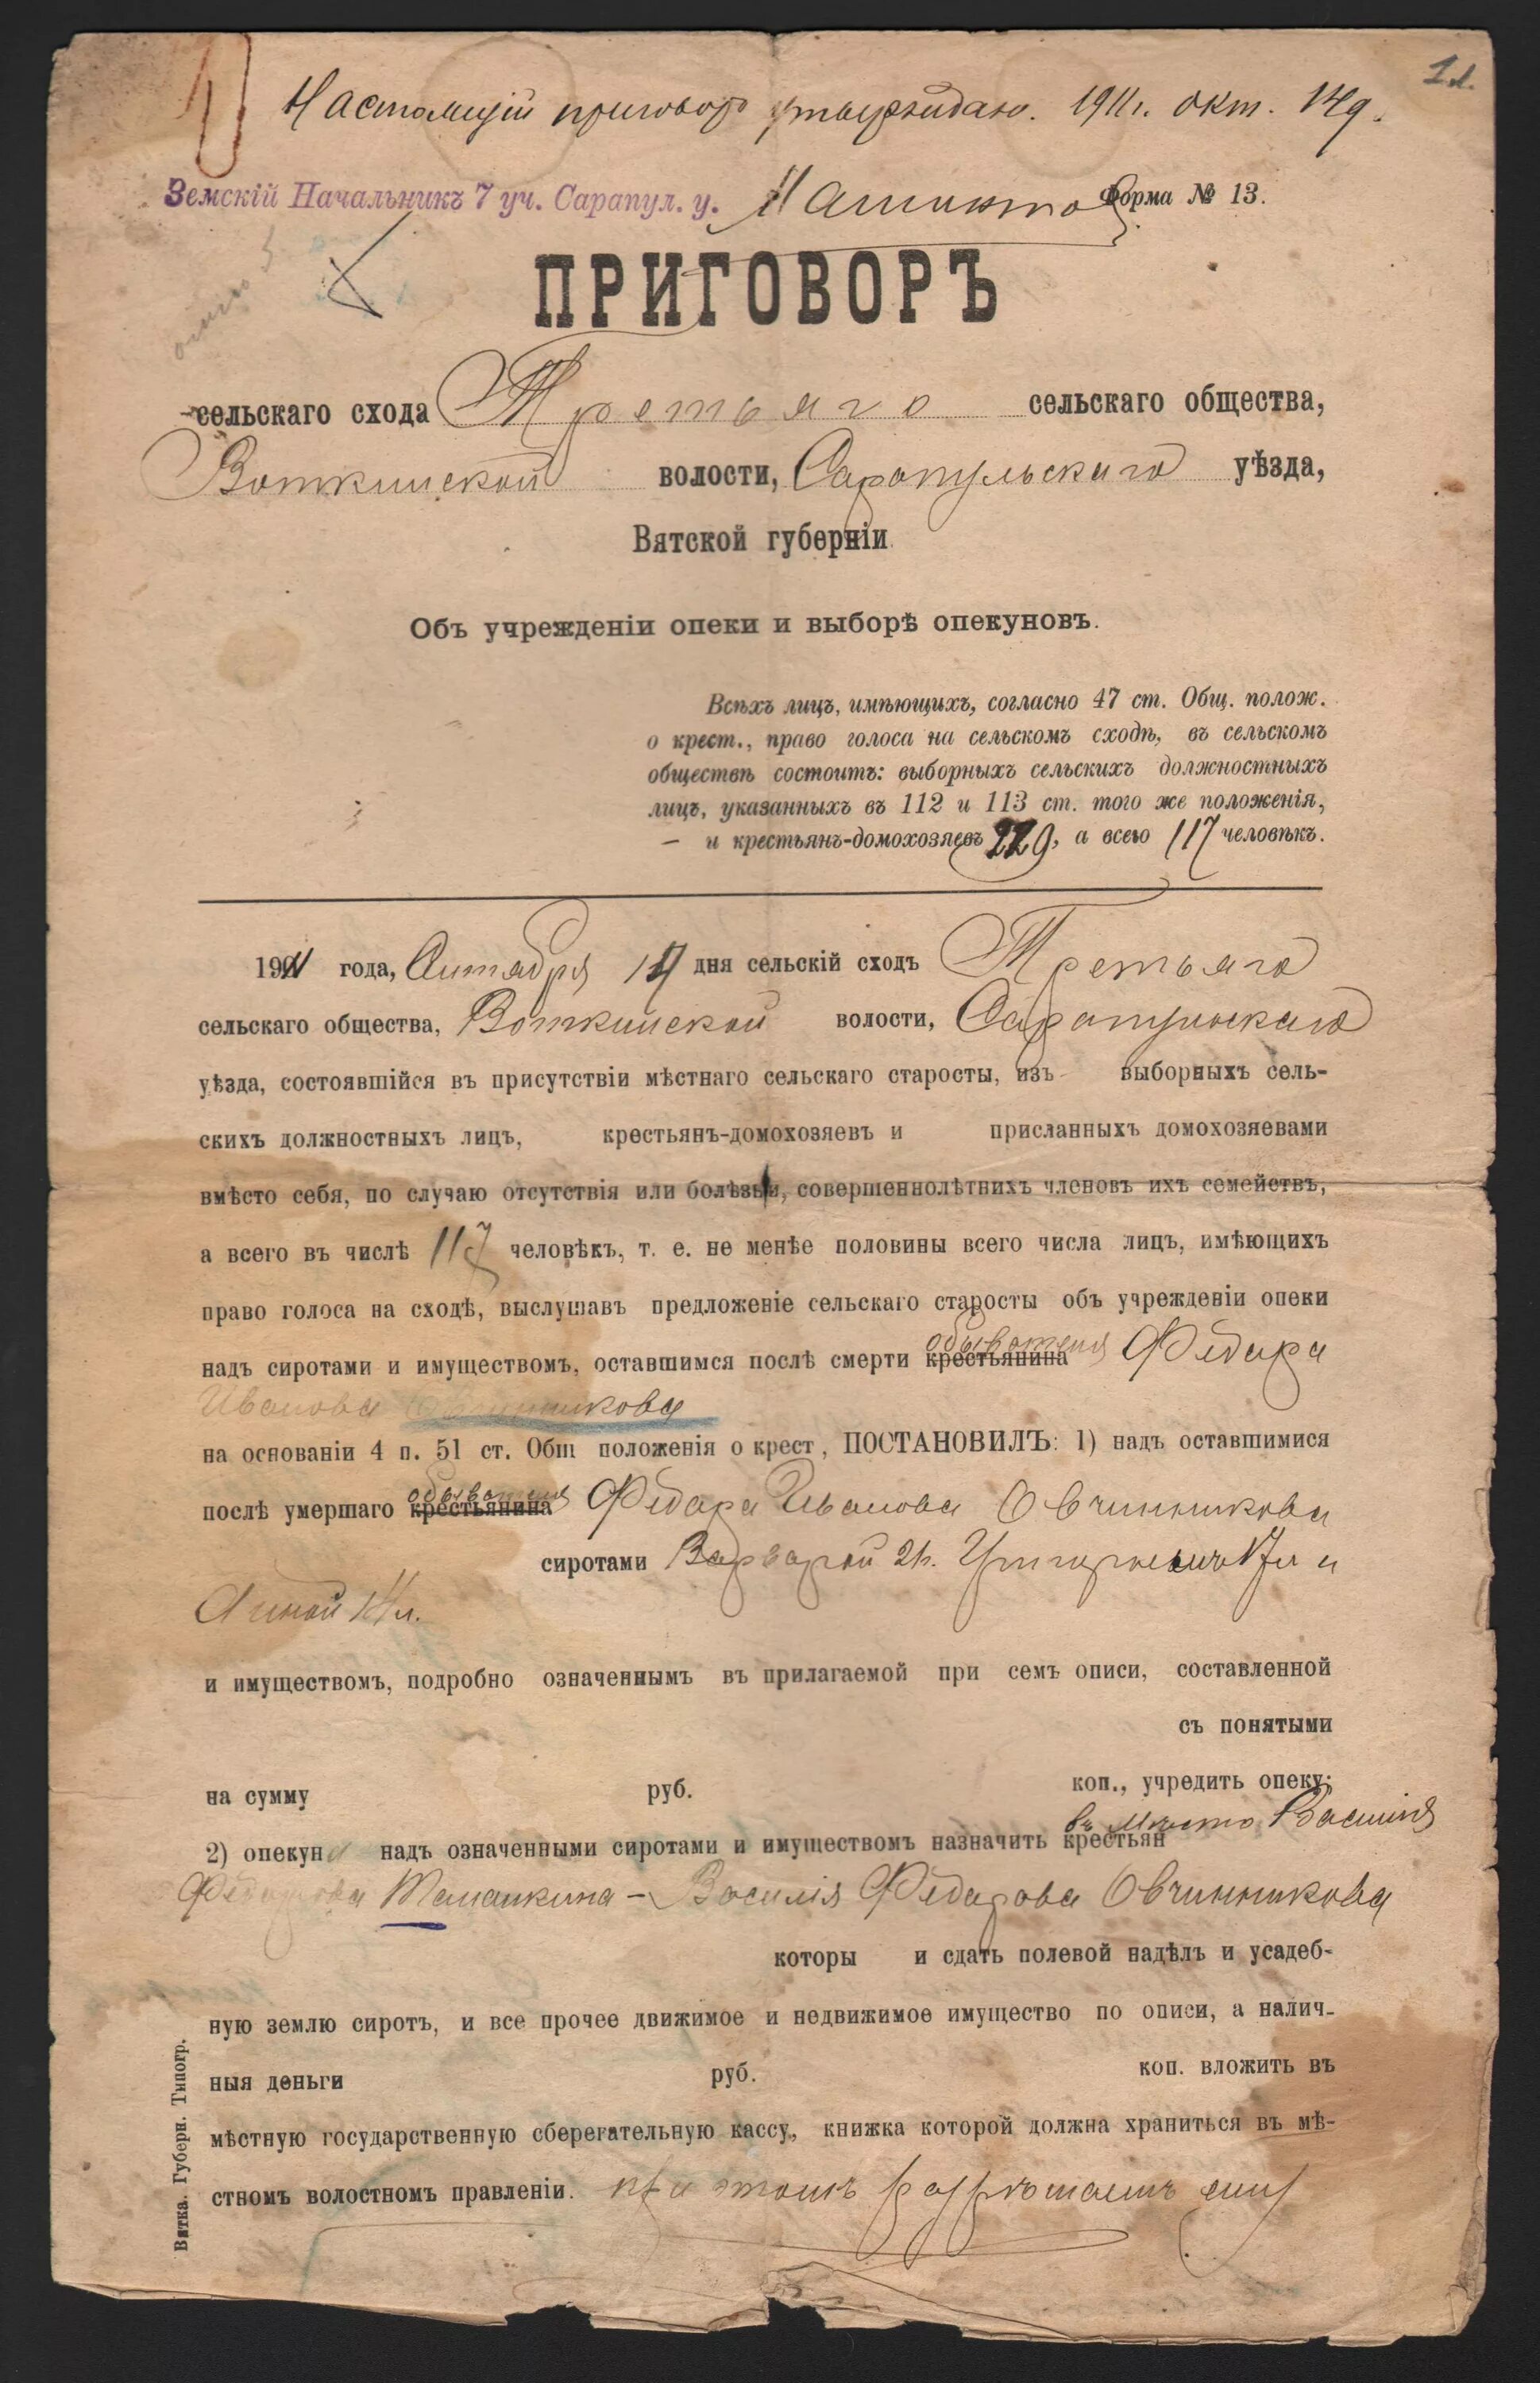 1 л.
Настоящій приговоръ утверждаю. 1911 г. окт. 14 д.
Земскій Начальникъ 7 уч. Сарапул. у.
Форма № 13.
ПРИГОВОРЪ
сельскаго схода Третьяго сельскаго общества,
Воткинской волости, Сарапульскаго уѣзда,
Вятской губерніи
Объ учрежденіи опеки и выборѣ опекуновъ.
Всѣхъ лицъ, имѣющихъ, согласно 47 ст. Общ. полож.
о крест., право голоса на сельскомъ сходѣ, въ сельскомъ
обществѣ состоитъ: выборныхъ сельскихъ должностныхъ
лицъ, указанныхъ въ 112 и 113 ст. того же положенія,
— и крестьянъ-домохозяевъ 229, а всего 117 человѣкъ.
1911 года, Октября дня сельскій сходъ Третьяго
сельскаго общества, Воткинской волости, Сарапульскаго
уѣзда, состоявшійся въ присутствіи мѣстнаго сельскаго старосты, изъ выборныхъ сель-
скихъ должностныхъ лицъ, крестьянъ-домохозяевъ и присланныхъ домохозяевами
вмѣсто себя, по случаю отсутствія или болѣзни, совершеннолѣтнихъ членовъ ихъ семействъ,
а всего въ числѣ 117 человѣкъ, т. е. не менѣе половины всего числа лицъ, имѣющихъ
право голоса на сходѣ, выслушавъ предложеніе сельскаго старосты объ учрежденіи опеки
обывателя
надъ сиротами и имуществомъ, оставшимся послѣ смерти крестьянина Федора
Иванова Овчинникова
на основаніи 4 п. 51 ст. Общ положенія о крест, ПОСТАНОВИЛЪ: 1) надъ оставшимися
обывателя
послѣ умершаго крестьянина Федора Иванова Овчинникова
сиротами Варварой 21. Григорьемъ 17 л и
Анной 14 л.
и имуществомъ, подробно означеннымъ въ прилагаемой при семъ описи, составленной
съ понятыми
на сумму руб. коп., учредить опеку;
въ мѣсто Василія
2) опекуна надъ означенными сиротами и имуществомъ назначить крестьян
Федорова — Василія Федорова Овчинникова
которы и сдать полевой надѣлъ и усадеб-
ную землю сиротъ, и все прочее движимое и недвижимое имущество по описи, а налич-
ныя деньги руб. коп. вложить въ
мѣстную государственную сберегательную кассу, книжка которой должна храниться въ мѣ-
стномъ волостномъ правленіи. при этомъ разрѣшаемъ ему
Вятка. Губерн. Типогр.